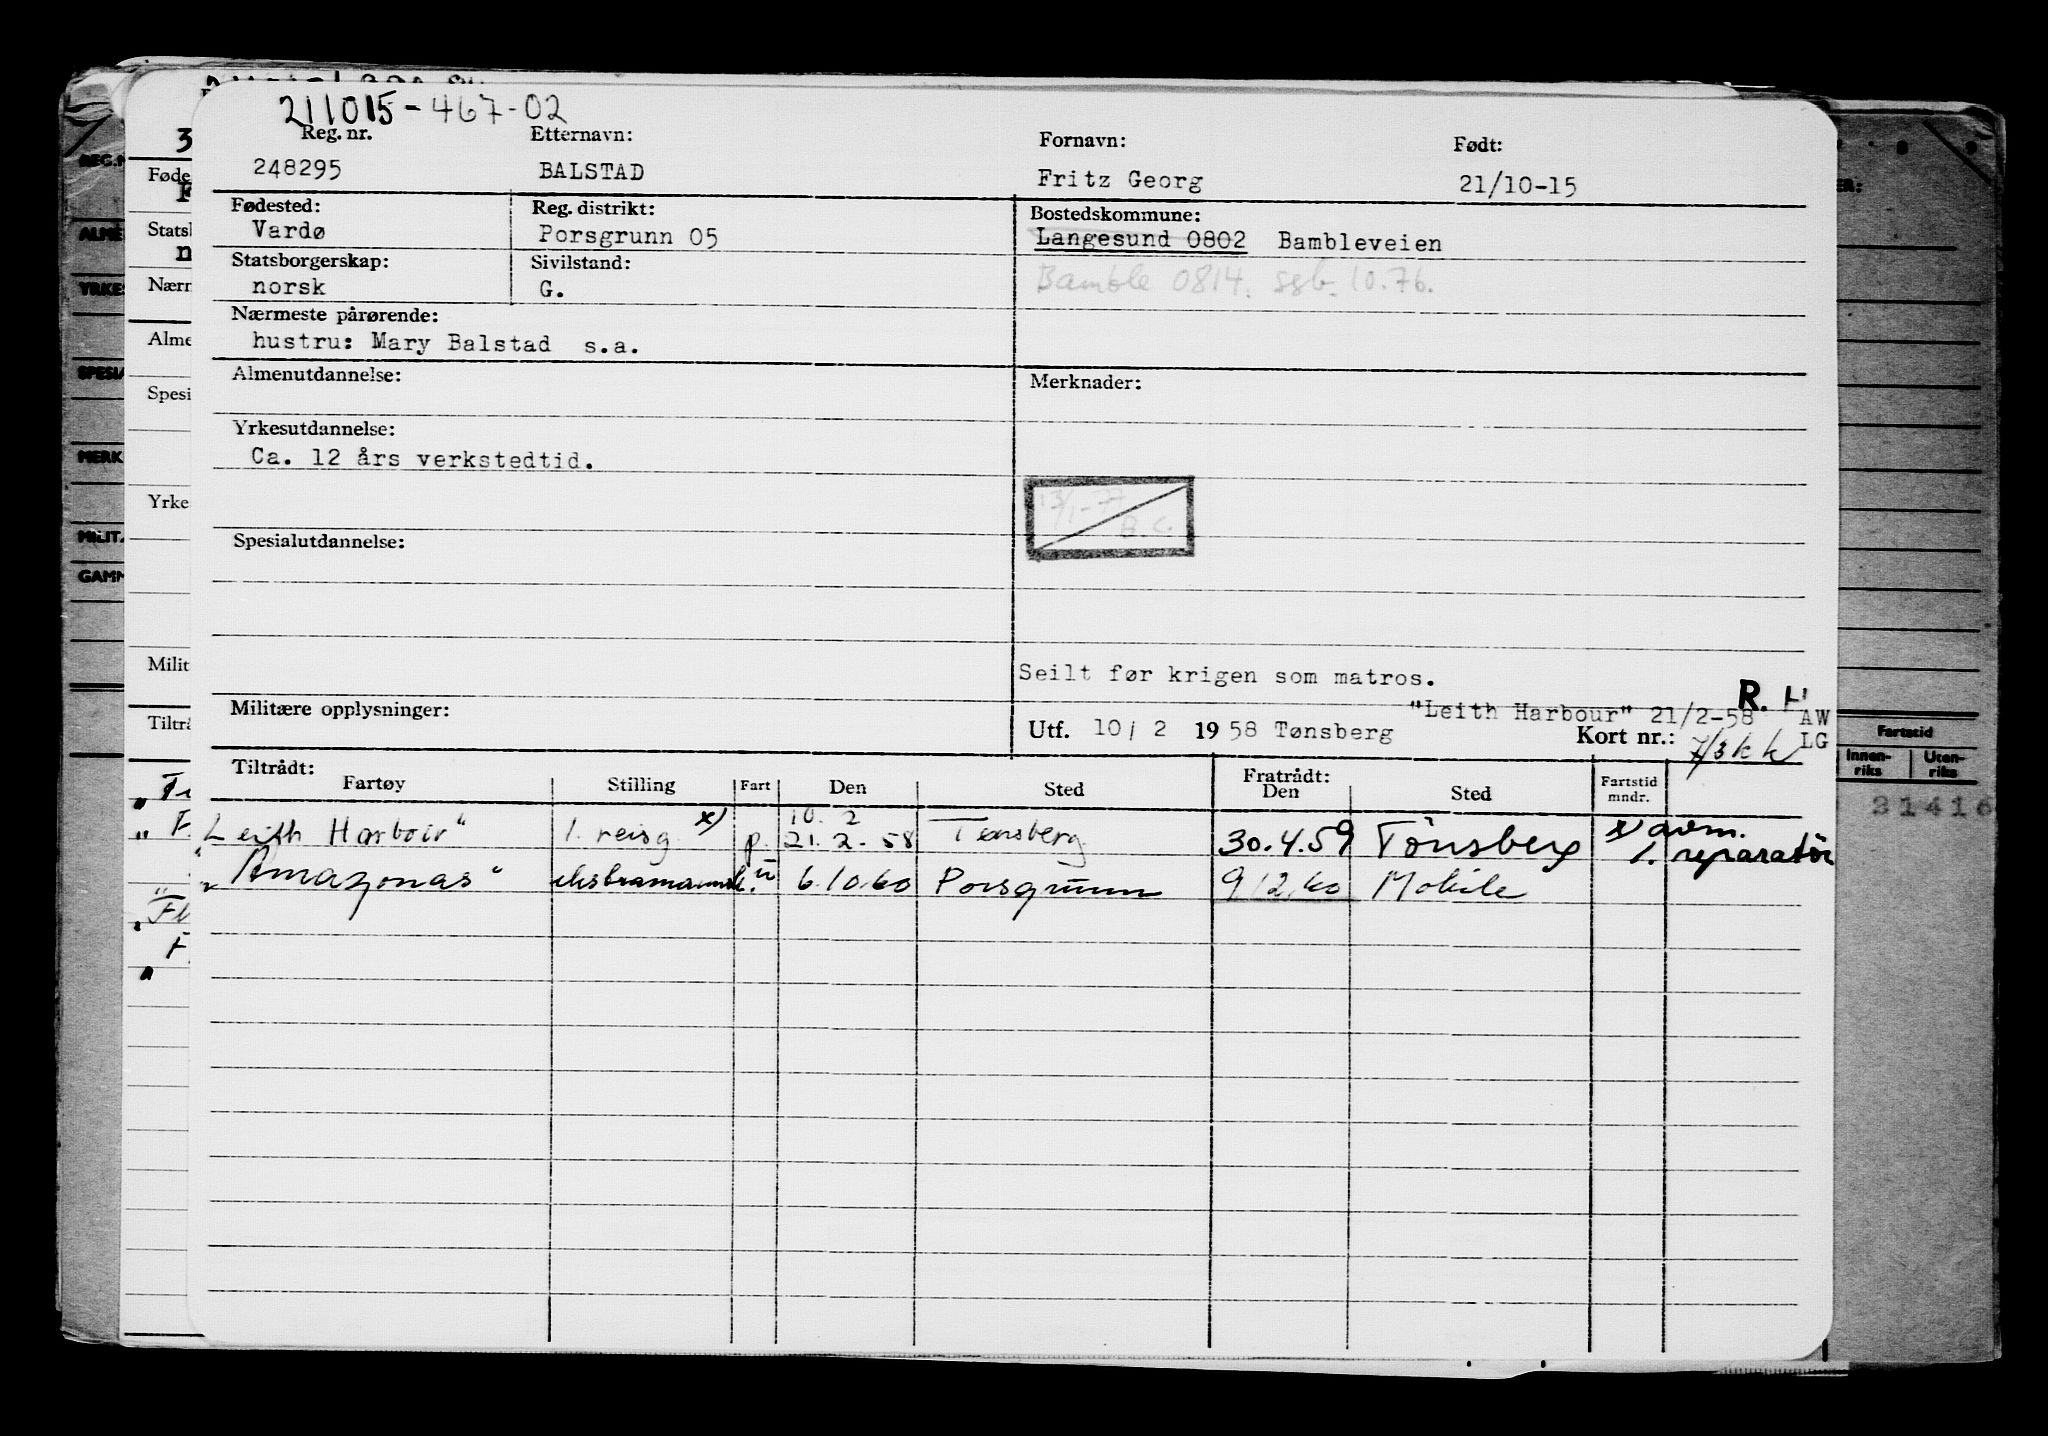 211015-467-02
Reg. nr. Etternavn: Fornavn: Født:
248295 BALSTAD Fritz Georg 21/10-15
Fødested: Reg. distrikt: Bostedskommune:
Vardø Porsgrunn 05 Langesund 0802 Bambleveien
Statsborgerskap: Sivilstand:
norsk G. Bamble 0814. sgb. 10.76.
Nærmeste pårørende:
hustru: Mary Balstad s.a.
Almenutdannelse: Merknader:
Yrkesutdannelse:
Ca. 12 års verkstedtid.
13/1-77
B.C.
Spesialutdannelse:
Seilt før krigen som matros.
R. H
"Leith Harbour" 21/2-58 AW
Militære opplysninger: Utf. 10/2 1958 Tønsberg Kort nr.: LG
7/3 k k
Tiltrådt: Fratrådt:
Fartøy Stilling Fart Den Sted Den Sted Fartstid mndr.
10. 2
Leith Harbour" 1. reisg. x) p. 21. 2. 58 Tønsberg 30.4.59 Tönsberg x) avm.
1. reparatör
"Amazonas" u 6.10.60 Porsgrunn 9/12.60 Mobile
REG.N
ALME
YRKES
SPESIA
MERK
MILIT.
GAMM
3
Føde
Statsb
n
Nærm
Alme
Spesi
Yrke
Milit
Tiltrå
ER:
Fartstid
Innen-riks Uten-riks
31416